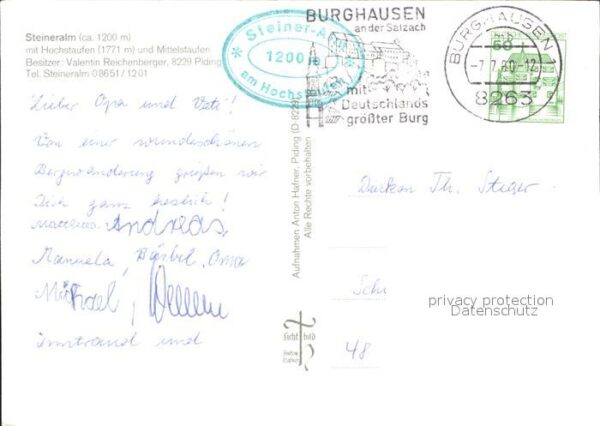 Steineralm (ca. 1200 m)
mit Hochstaufen (1771 m) und Mittelstaufen
Besitzer: Valentin Reichenberger, 8229 Piding
Tel. Steineralm 08651/1201
* Steiner-Alm *
1200 m
am Hochstaufen
BURGHAUSEN
an der Salzach
mit
Deutschlands
größter Burg
BURGHAUSEN 1
-7.7.80-12
8263
50
Lieber Opa und Veti!
Von einer wunderschönen
Bergwanderung grüßen wir
Dich ganz herzlich!
Matthias Andreas,
Manuela, Bärbel, Oma
Michael,
und
Aufnahmen Anton Hafner, Piding (D-8229)
Alle Rechte vorbehalten
Th. Steger
Sch
privacy protection
Datenschutz
48